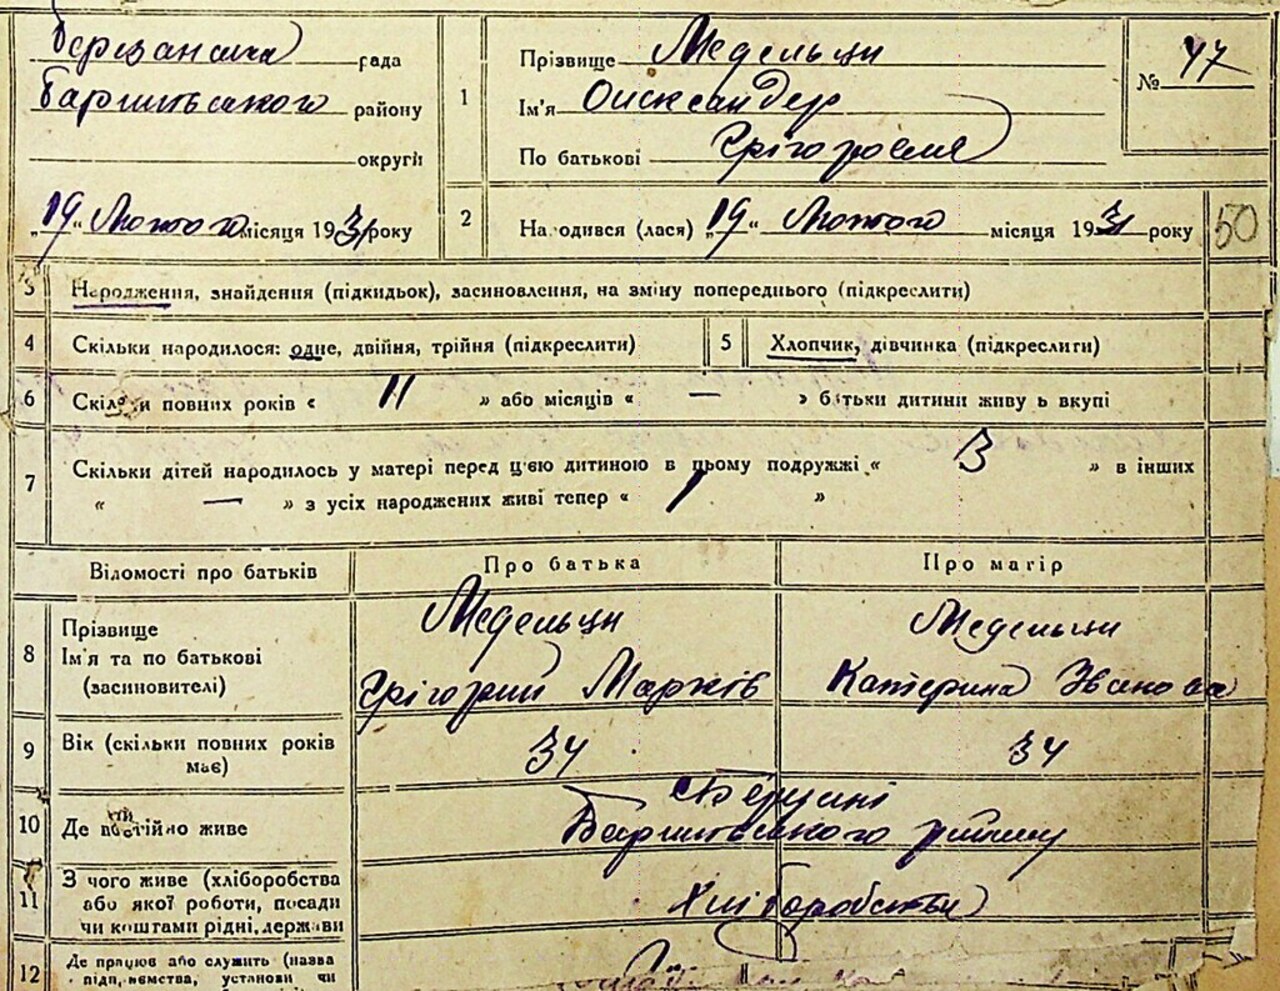 Березанська рада
Баришівського району
округи
„19“ Лютого місяця 1931 року
1 Прізвище Медельци
Ім'я Олександер
По батькові Грігорович
№ 47
2 Народився (лася) „19“ Лютого місяця 1931 року
50
3 Народження, знайдення (підкидьок), засиновлення, на зміну попереднього (підкреслити)
4 Скільки народилося: одне, двійня, трійня (підкреслити)
5 Хлопчик, дівчинка (підкреслити)
6 Скільки повних років « 11 » або місяців « — » батьки дитини живуть вкупі
7 Скільки дітей народилось у матері перед ц'єю дитиною в цьому подружжі « 3 » в інших
« — » з усіх народжених живі тепер « 1 »
Відомості про батьків
Про батька
Про матір
8 Прізвище
Ім'я та по батькові
(засиновителі)
Медельци
Грігорий Марків
Медельци
Катерина Званова
9 Вік (скільки повних років
має)
34
34
10 Де постійно живе
с Березані
Баришівського району
11 З чого живе (хліборобства
або якої роботи, посади
чи коштами рідні, держави
Хліборобства
12 Де працює або служить (назва
підприємства, установи чи